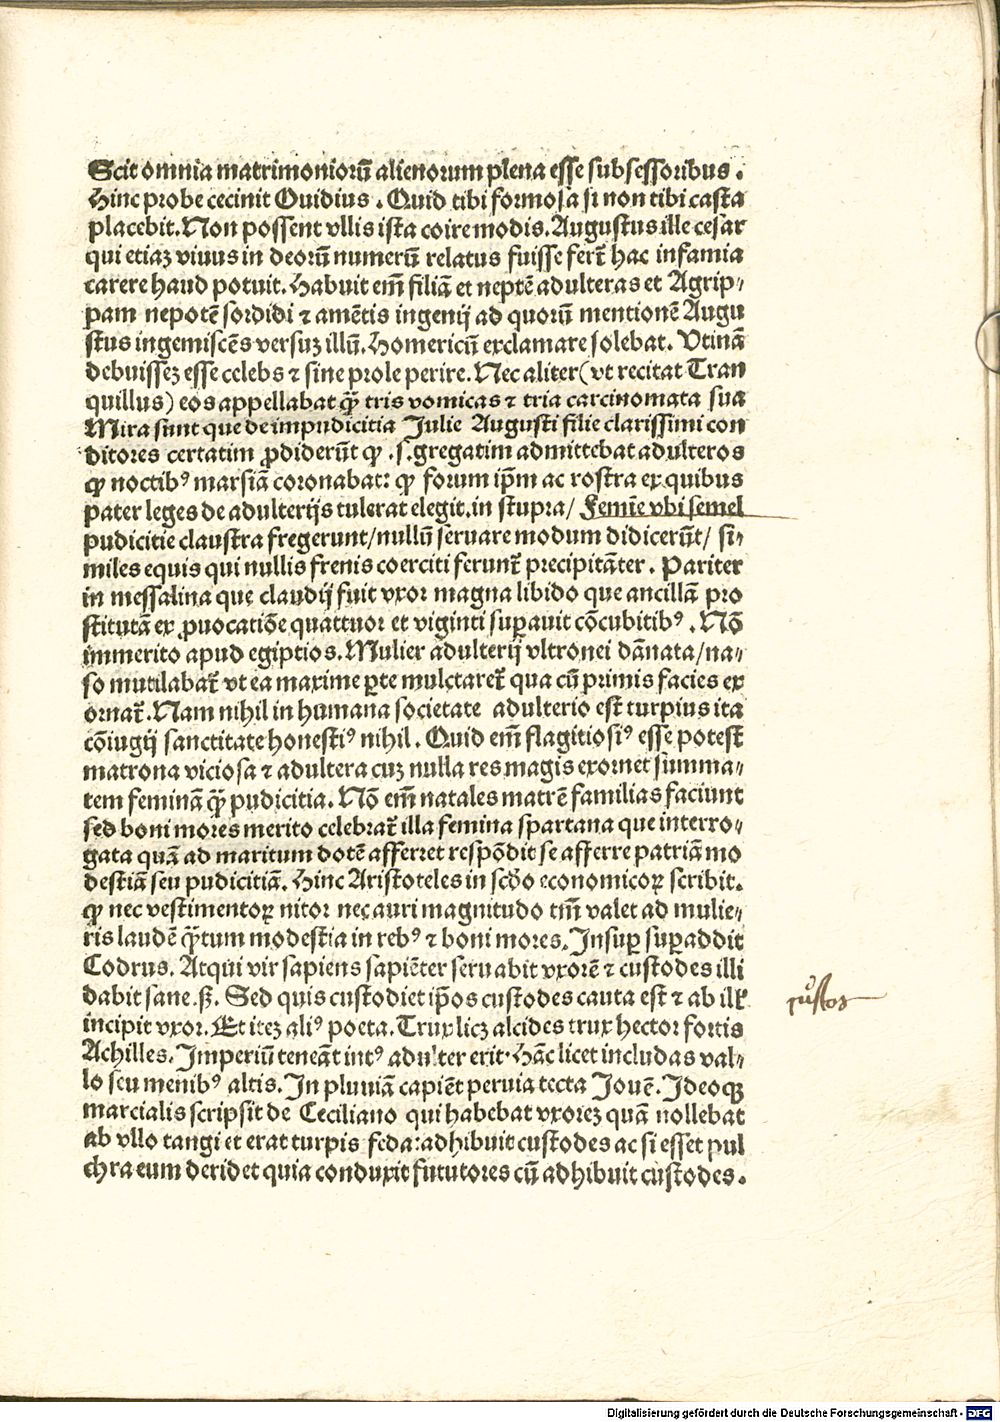 Scit omnia matrimoniorū alienorum plena esse subsessoribus .
Hinc probe cecinit Ouidius . Quid tibi formosa si non tibi casta
placebit. Non possent vllis ista coire modis. Augustus ille cesar
qui etiaz viuus in deorū numerū relatus fuisse fert̄ hac infamia
carere haud potuit. Habuit em̄ filiā et neptē adulteras et Agrip-
pam nepotē sordidi ⁊ amētis ingenij ad quorū mentionē Augu
stus ingemiscēs versuz illū. Homericū exclamare solebat. Vtinā
debuissez esse celebs ⁊ sine prole perire. Nec aliter (vt recitat Tran
quillus) eos appellabat qꝫ̄ tris vomicas ⁊ tria carcinomata sua
Mira sunt que de impudicitia Julie Augusti filie clarissimi con
ditores certatim ꝓdiderūt ꝙ .s. gregatim admittebat adulteros
ꝙ noctibꝰ marsiā coronabat: ꝙ forum ip̄m ac rostra ex quibus
pater leges de adulterijs tulerat elegit. in stupra/ Femie̅ vbi semel
pudicitie claustra fregerunt/nullū seruare modum didicerūt/ si-
miles equis qui nullis frenis coerciti ferunt̄ precipitāter . Pariter
in messalina que claudij fuit vxor magna libido que ancillā pro
stitutā ex ꝓuocatiōe quattuor et viginti suꝑauit cōcubitibꝰ . Nō
immerito apud egiptios. Mulier adulterij vltronei dānata/na-
so mutilabat̄ vt ea maxime ꝑte mulctaret̄ qua cū primis facies ex
ornat̄. Nam nihil in humana societate adulterio est turpius ita
cōiugij sanctitate honestiꝰ nihil . Quid em̄ flagitiosiꝰ esse potest
matrona viciosa ⁊ adultera cuz nulla res magis exornet summa-
tem feminā qꝫ̄ pudicitia. Nō em̄ natales matrē familias faciunt
sed boni mores merito celebrat̄ illa femina spartana que interro-
gata quā ad maritum dotē afferret respōdit se afferre patriā mo
destiā seu pudicitiā. Hinc Aristoteles in scd̄o economicoꝝ scribit.
ꝙ nec vestimentoꝝ nitor nec auri magnitudo tm̄ valet ad mulie-
ris laudē qꝫ̄tum modestia in rebꝰ ⁊ boni mores. Insuꝑ suꝑaddit
Codrus. Atqui vir sapiens sapiēter seruabit vxorē ⁊ custodes illi
dabit sane .ẜ. Sed quis custodiet ip̄os custodes cauta est ⁊ ab ill̕
incipit vxor. Et itez aliꝰ poeta. Trux licz alcides trux hector fortis
Achilles. Imperiū teneāt intꝰ adulter erit. Hāc licet includas val-
lo seu menibꝰ altis. In pluuiā capiēt peruia tecta Jouē. Ideoqꝫ
marcialis scripsit de Ceciliano qui habebat vxorez quā nollebat
ab vllo tangi et erat turpis feda: adhibuit custodes ac si esset pul
chra eum deridet quia conduxit fututores cū adhibuit custodes .
custos
Digitalisierung gefördert durch die Deutsche Forschungsgemeinschaft - DFG